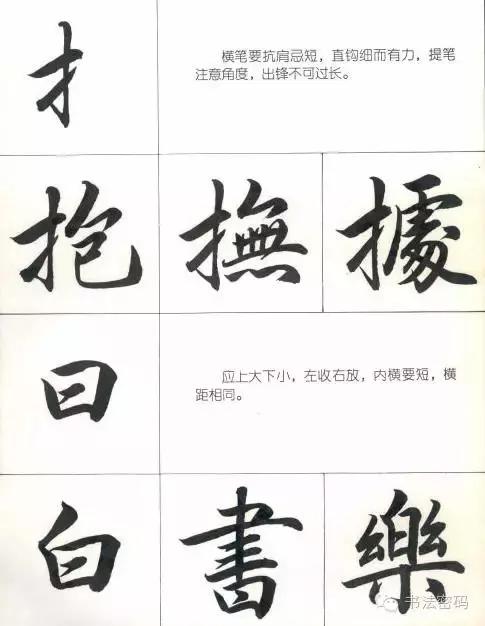 扌
横笔要抗肩忌短，直钩细而有力，提笔
注意角度，出锋不可过长。
抱 撫 據
曰
应上大下小，左收右放，内横要短，横
距相同。
白 書 樂
书法密码